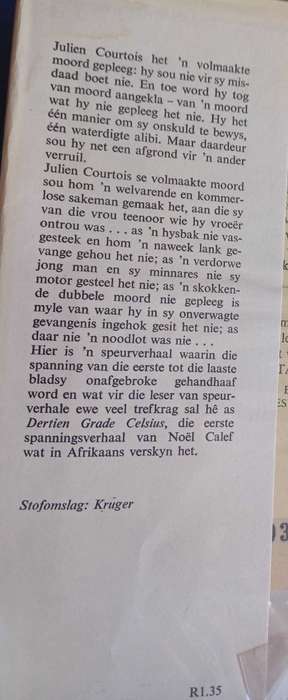 Julien Courtois het 'n volmaakte
moord gepleeg: hy sou nie vir sy mis-
daad boet nie. En toe word hy tog
van moord aangekla – van 'n moord
wat hy nie gepleeg het nie. Hy het
één manier om sy onskuld te bewys,
één waterdigte alibi. Maar daardeur
sou hy net een afgrond vir 'n ander
verruil.
Julien Courtois se volmaakte moord
sou hom 'n welvarende en kommer-
lose sakeman gemaak het, aan die sy
van die vrou teenoor wie hy vroeër
ontrou was . . . as 'n hysbak nie vas-
gesteek en hom 'n naweek lank ge-
vange gehou het nie; as 'n verdorwe
jong man en sy minnares nie sy
motor gesteel het nie; as 'n skokken-
de dubbele moord nie gepleeg is
myle van waar hy in sy onverwagte
gevangenis ingehok gesit het nie; as
daar nie 'n noodlot was nie . . .
Hier is 'n speurverhaal waarin die
spanning van die eerste tot die laaste
bladsy onafgebroke gehandhaaf
word en wat vir die leser van speur-
verhale ewe veel trefkrag sal hê as
Dertien Grade Celsius, die eerste
spanningsverhaal van Noël Calef
wat in Afrikaans verskyn het.
Stofomslag: Kruger
R1.35